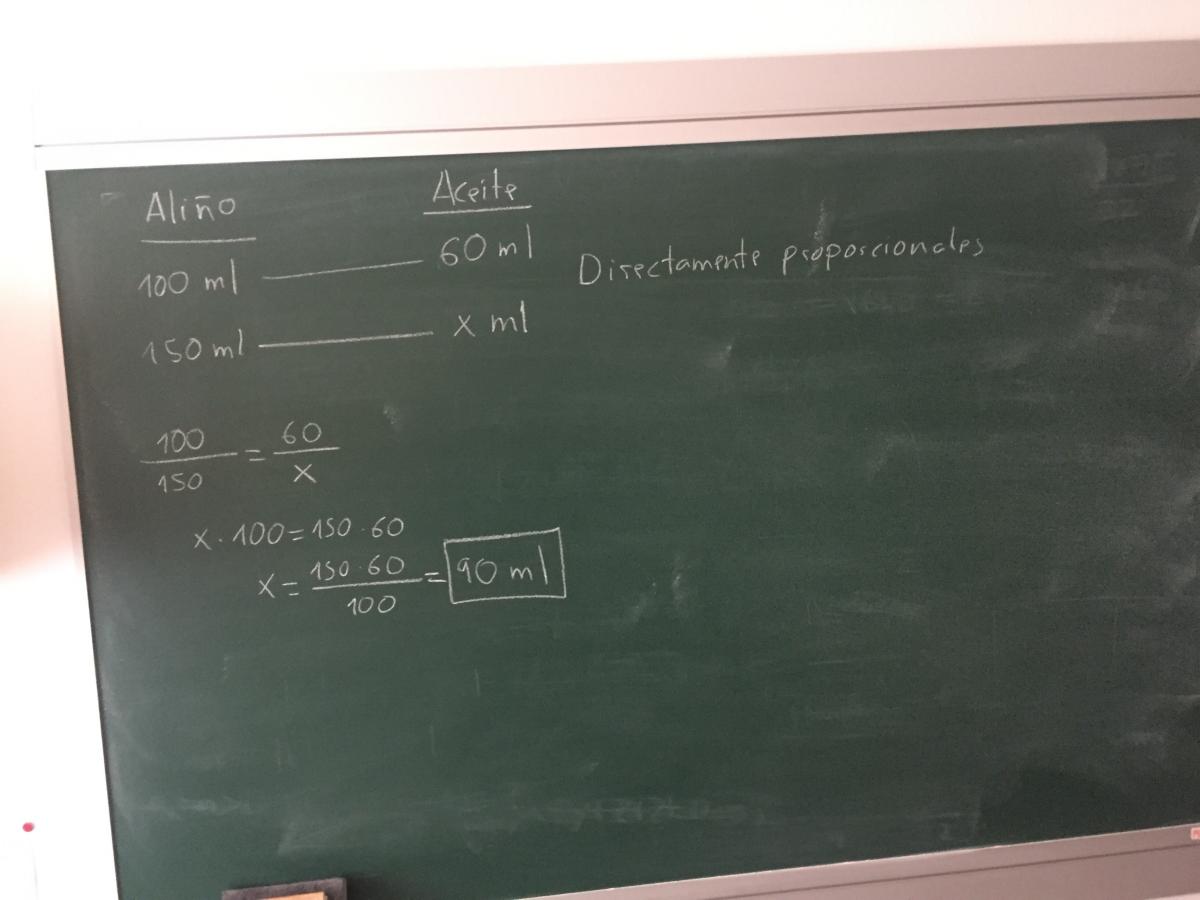 Aliño Aceite
100 ml 60 ml Directamente proporcionales
150 ml x ml
100/150 = 60/x
x · 100 = 150 · 60
x = 150 · 60/100 = 90 ml